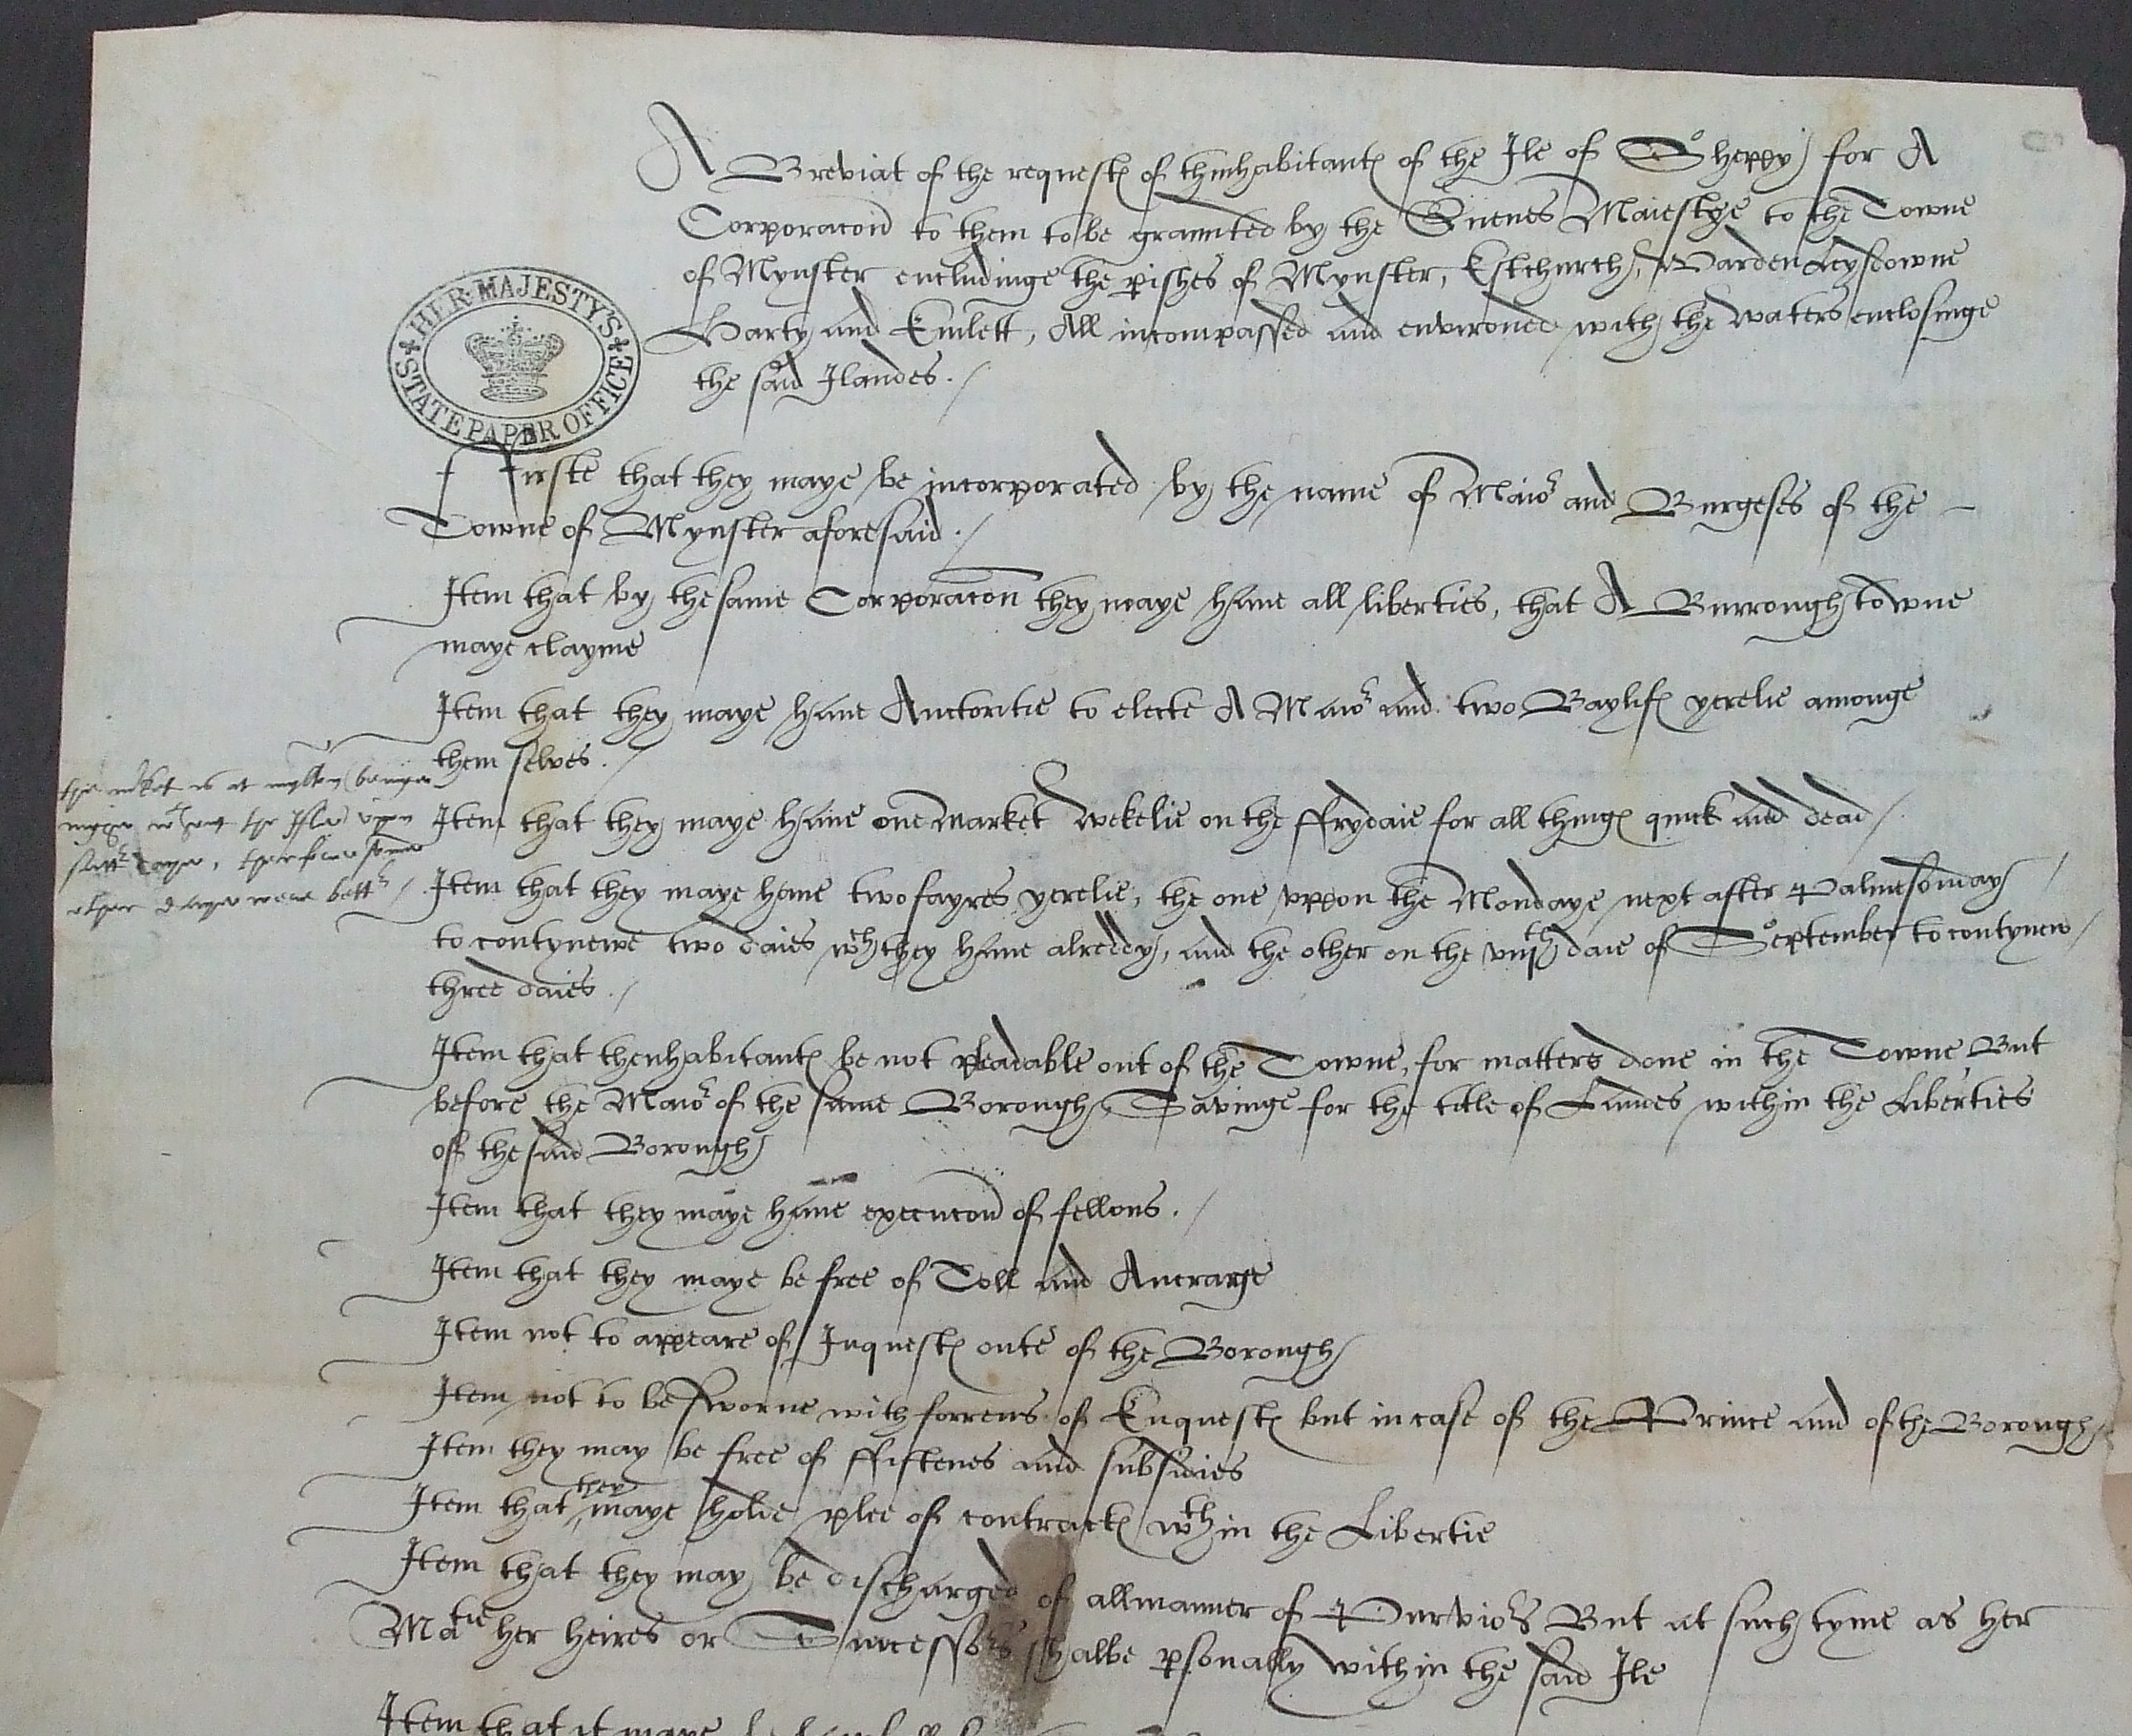 A Breviat of the requestes of thinhabitantes of the Ile of Sheppy for A
Corporacon to them to be graunted by the Quenes Maiestye to the Towne
of Mynster encludinge the pishes of Mynster, Estchurch, Warden Leysdowne
Harty and Emlett, All incompassed and environed with the waters enclosinge
the said Ilandes ./
HER MAJESTY'S
STATE PAPER OFFICE
ffirste that they maye be incorporated by the name of Maior and Burgeses of the
Towne of Mynster aforesaid ./
Item that by the same Corporacon they maye haue all liberties, that A Burrough towne
maye clayme
Item that they maye haue Auctoritie to electe A Maior and two Baylifes yerelie amonge
them selves ./
the mket is at mylton being
nighe wthout the Isle vpon
satt daye, therfore some
other daye were bettr /
Item that they maye haue one market wekelie on the ffrydaie for all thinges quick and dead /
Item that they maye haue two fayres yerelie, the one vppon the Mondaye next after Palmesonday /
to contynewe two daies wch they haue alreddy, and the other on the viijth daie of September to contynew /
three daies ./
Item that thenhabitantes be not pleadable out of the Towne, for matters done in the Towne But
before the Maior of the same Borough, Savinge for the title of Landes within the Liberties
of the said Borough
Item that they maye haue execucon of fellons ./
Item that they maye be free of Toll and Ancrarge
Item not to appeare of Inquestes oute of the Borough
Item not to be sworne with forrens of Enquestes but in case of the Prince and of the Borough
Item they may be free of ffiftenes and subsidies
Item that they maye holde plee of contractes wthin the Libertie
Item that they may be discharged of all manner of Purviors But at such tyme as her
Matie her heires or Successors shalbe psonally within the said Ile
Item that it maye be